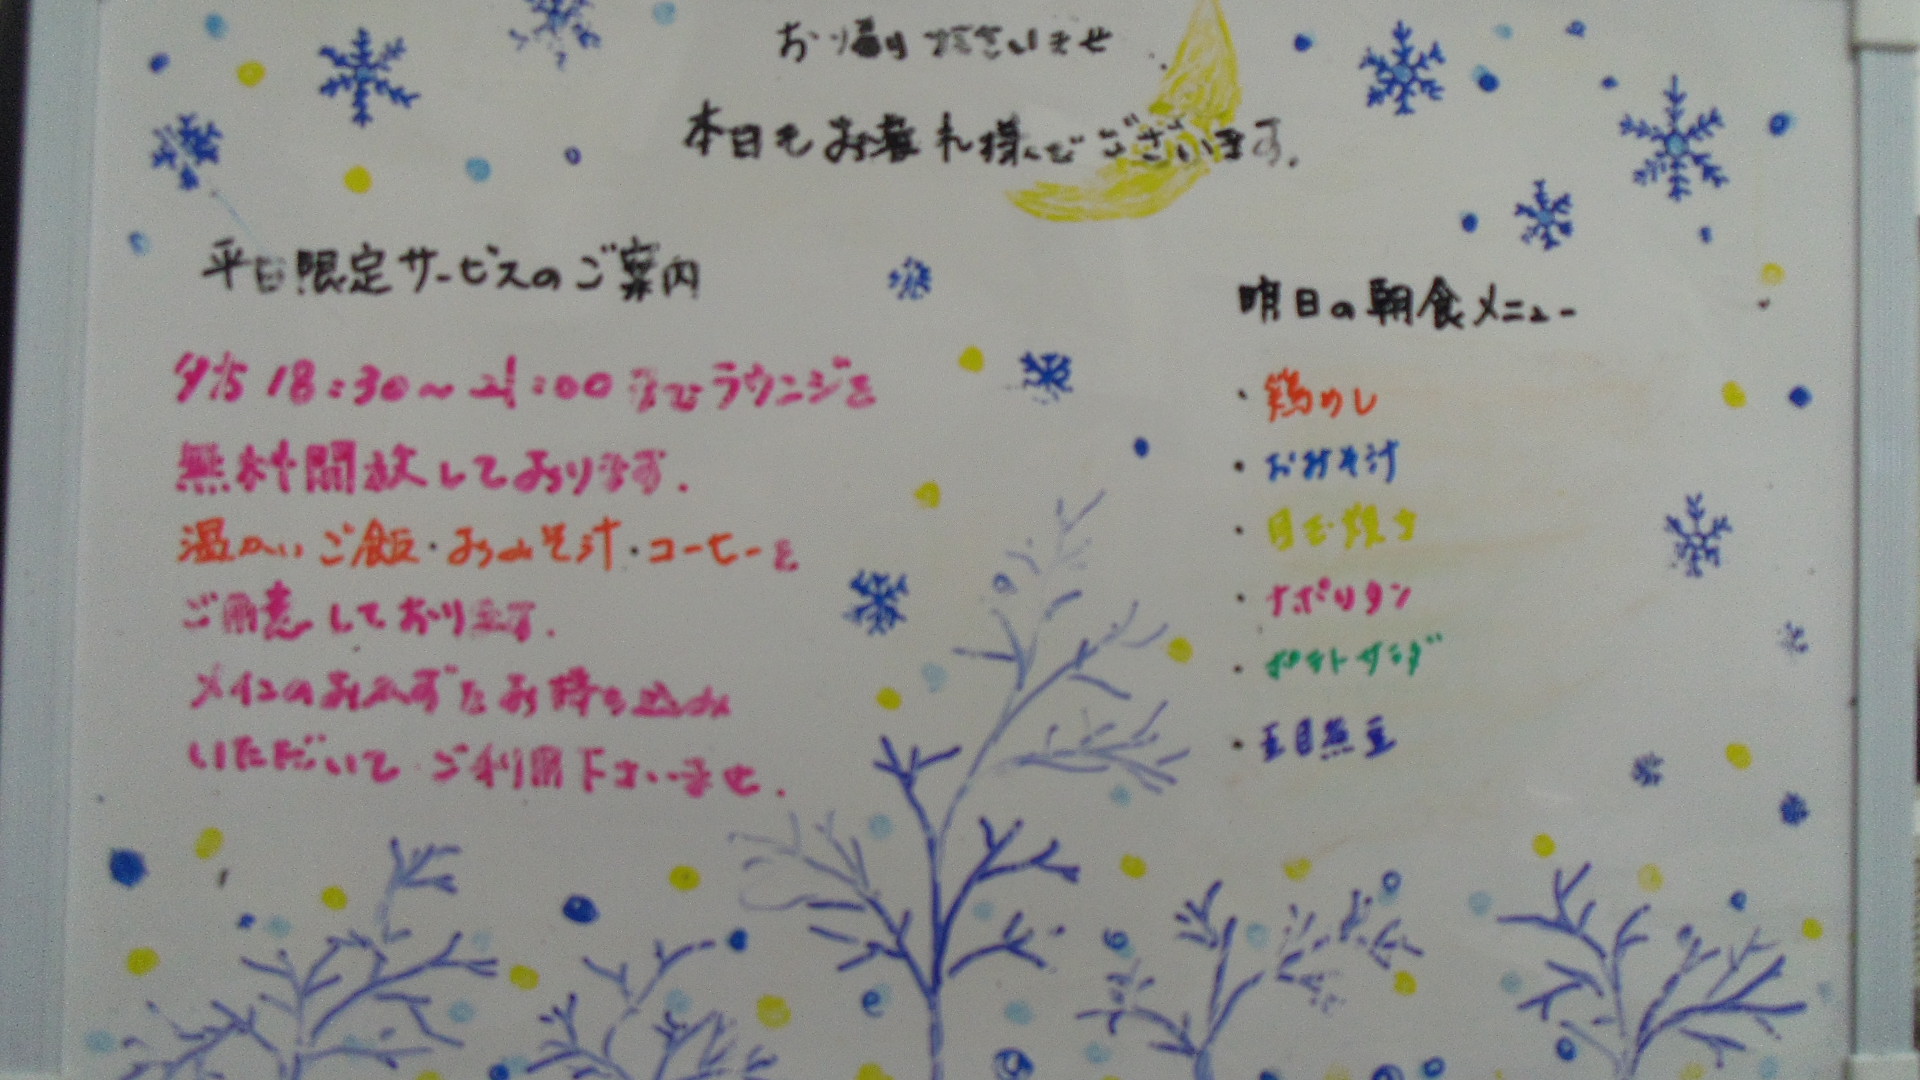 お帰りなさいませ
本日もお疲れ様でございます.
平日限定サービスのご案内
夕方 18:30〜21:00までラウンジを
無料開放しております.
温かいご飯・おみそ汁・コーヒーを
ご用意しております.
メインのおかずだけお持ち込み
いただいてご利用下さいませ.
明日の朝食メニュー
・鶏めし
・おみそ汁
・目玉焼き
・ナポリタン
・ポテトサラダ
・五目煮豆